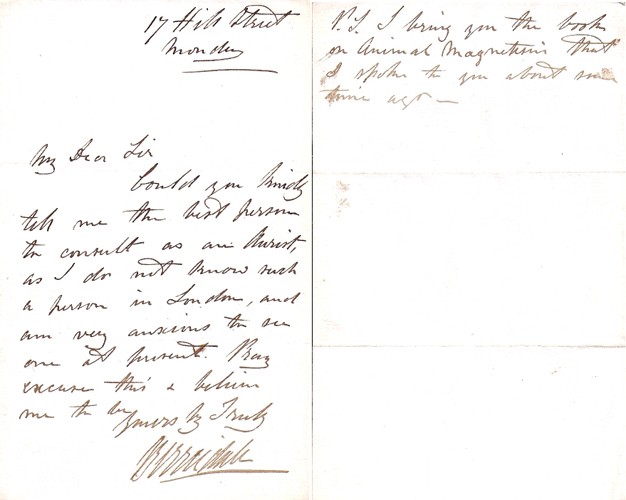 17 Hill Street
Monday
My Dear Sir
Could you kindly
tell me the best person
to consult as an Aurist,
as I do not know such
a person in London, and
am very anxious to see
one at present. Pray
excuse this & believe
me to be
yours vy Truly
Berriedale
P.S. I bring you the book
on Animal Magnetism that
I spoke to you about some
time ago —